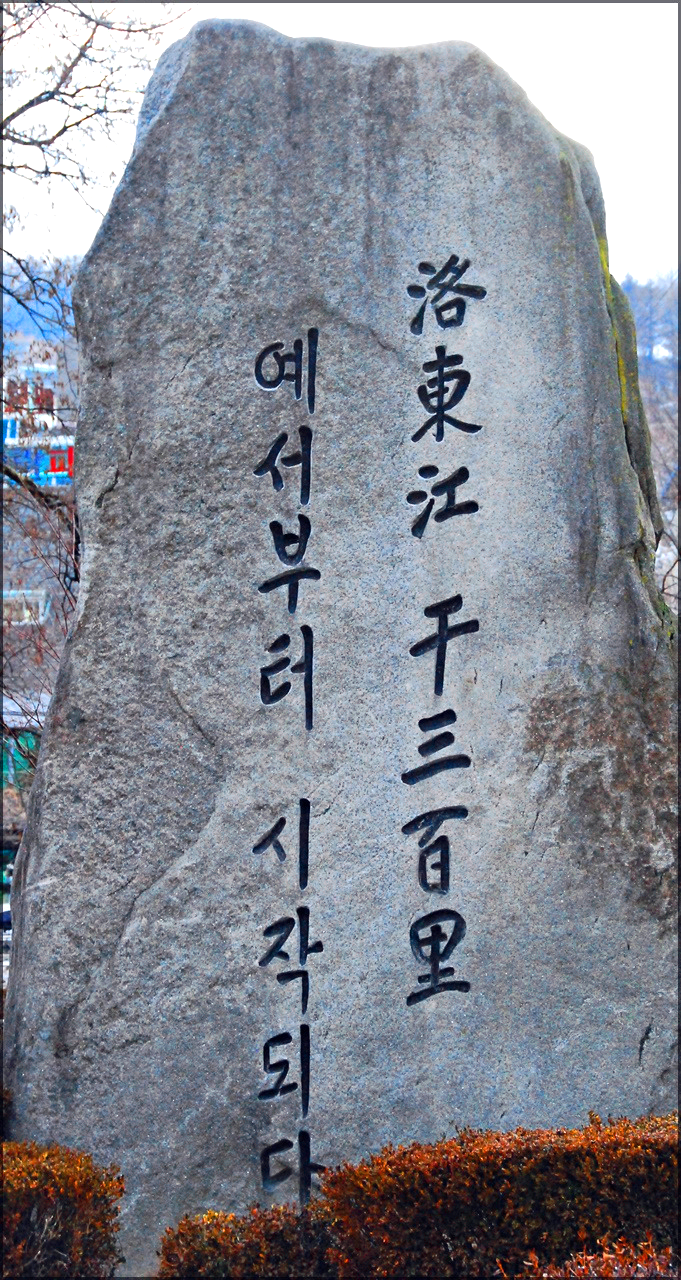 洛東江 千三百里
예서부터 시작되다